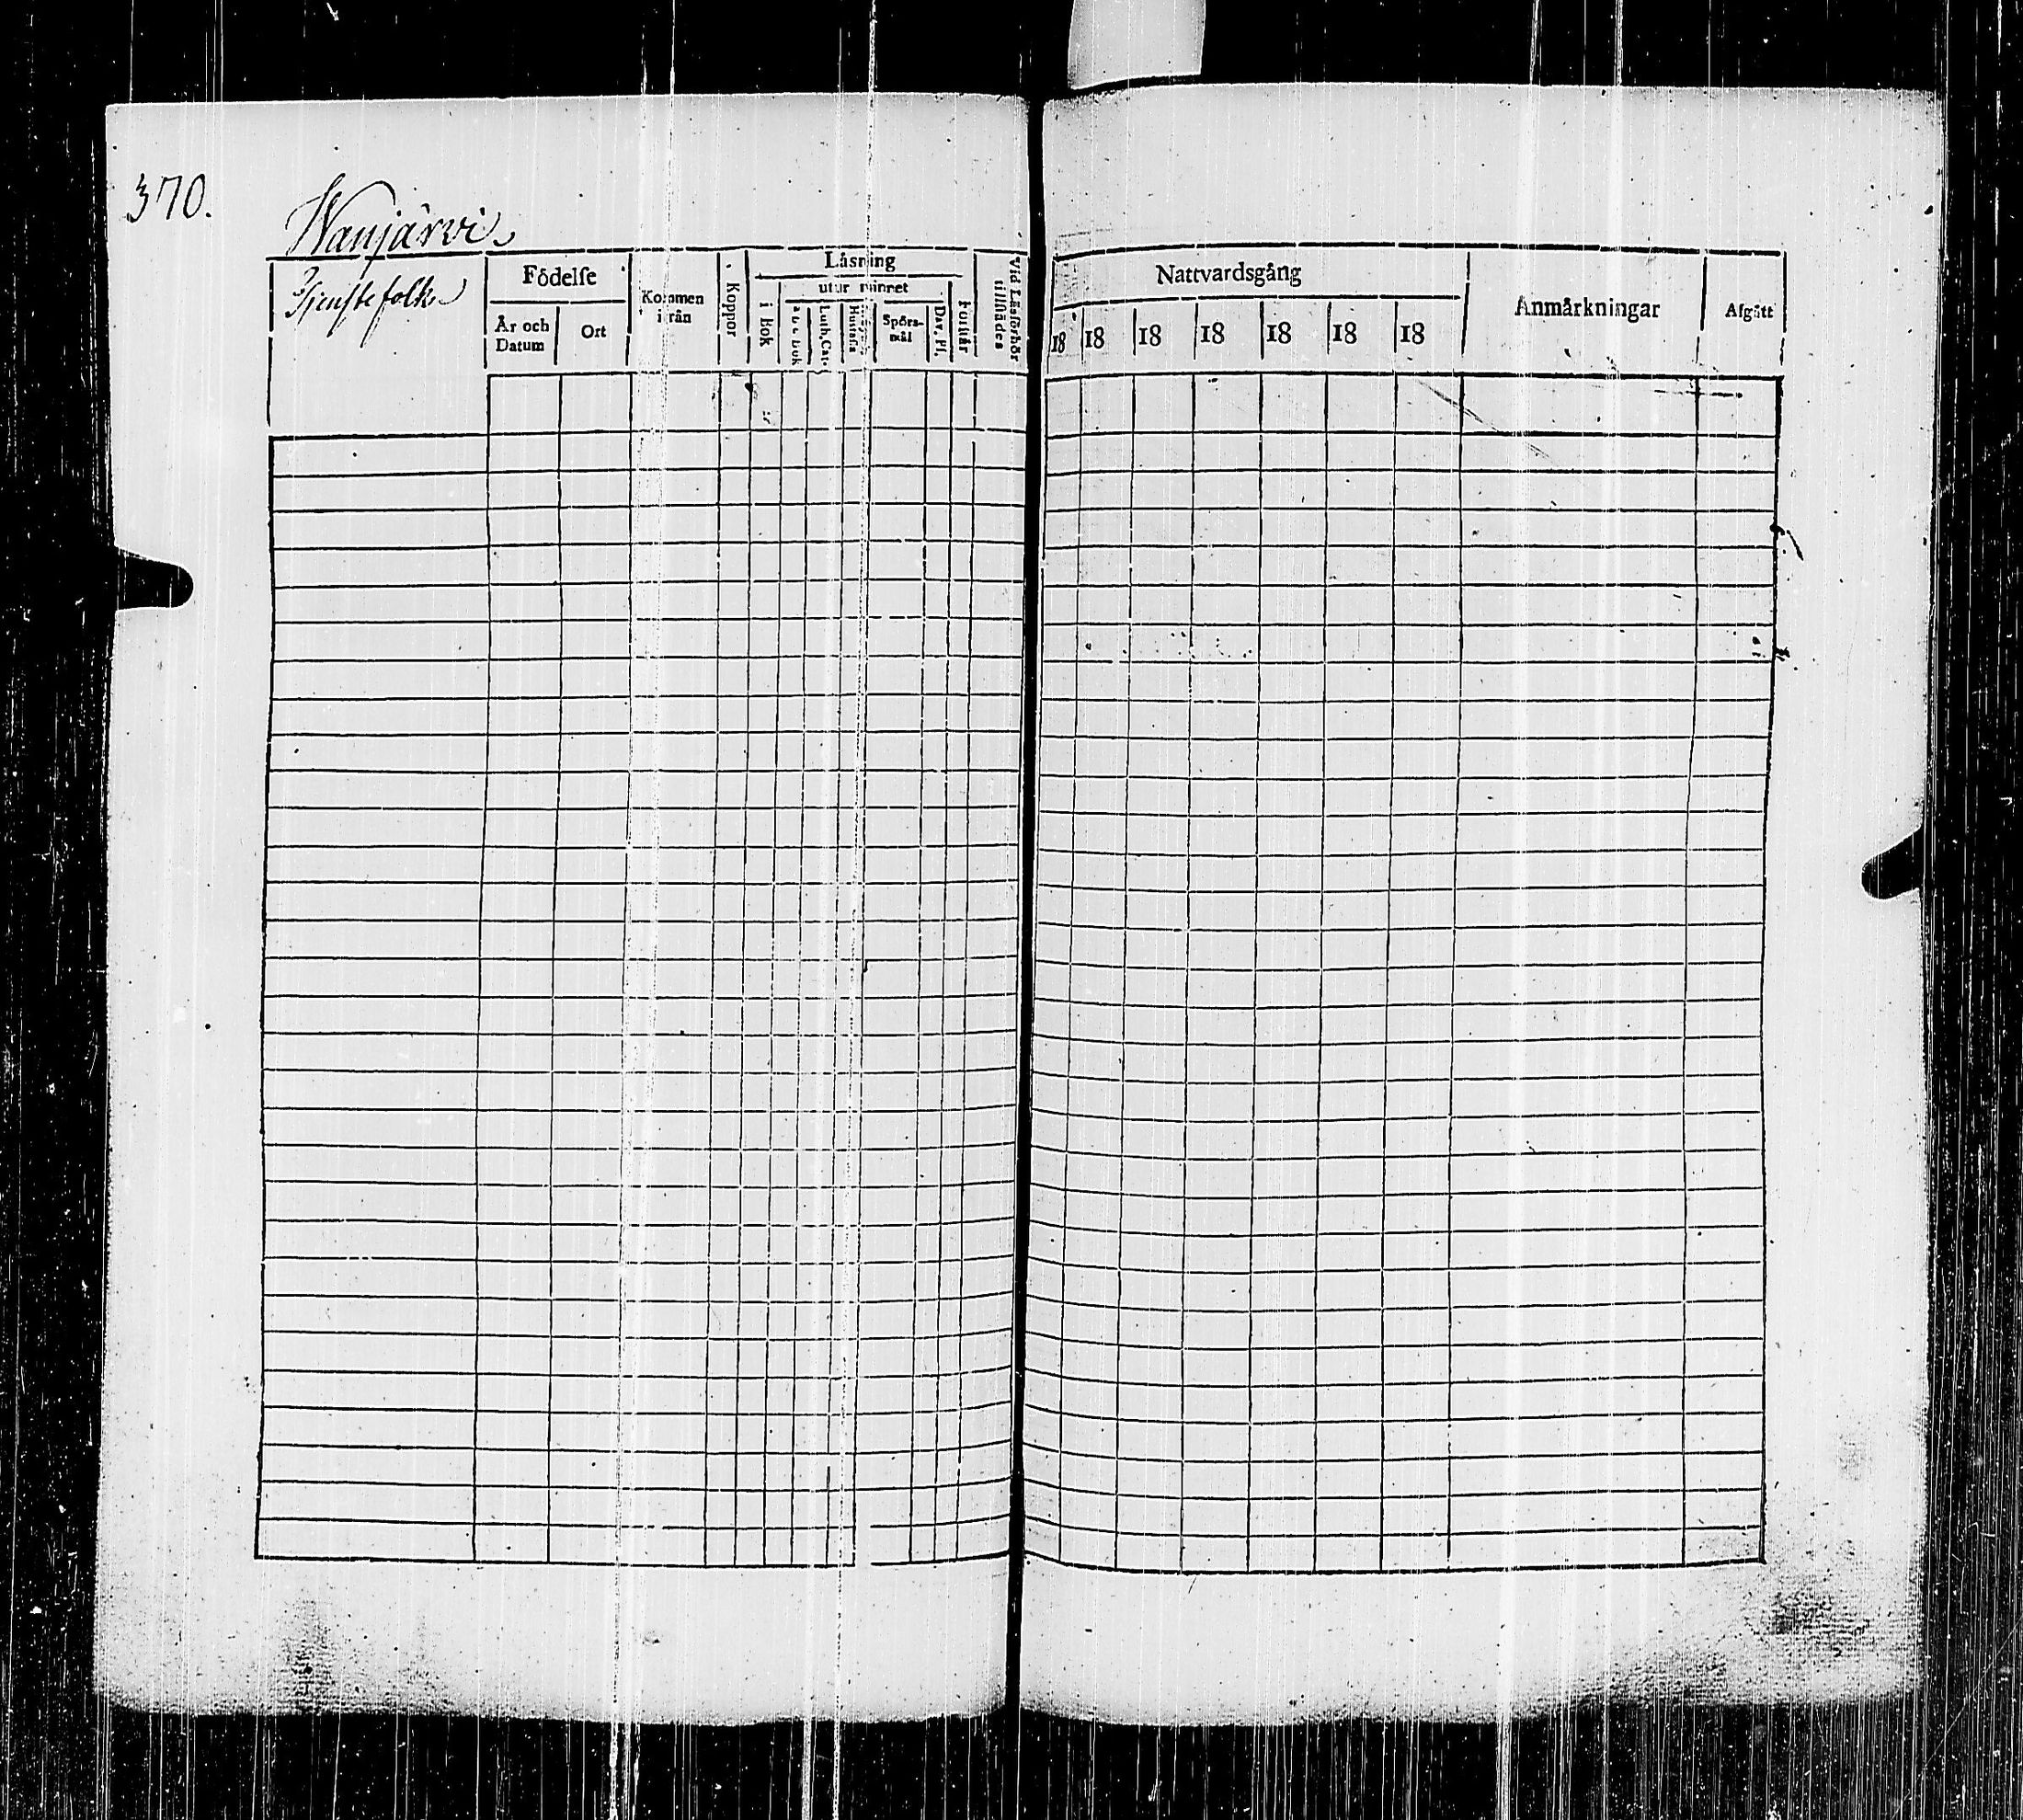 370.
Wanjärvi
Tjenstefolk
Födelse
År och Datum
Ort
Kommen ifrån
Koppor
Läsning
i Bok
utur minnet
Luth. Cat.
Hustafla
Spörsmål
Dav. Ps.
Förstår
Vid Läsförhör tillstädes
Nattvardsgång
18 18 18 18 18 18 18
Anmärkningar
Afgått